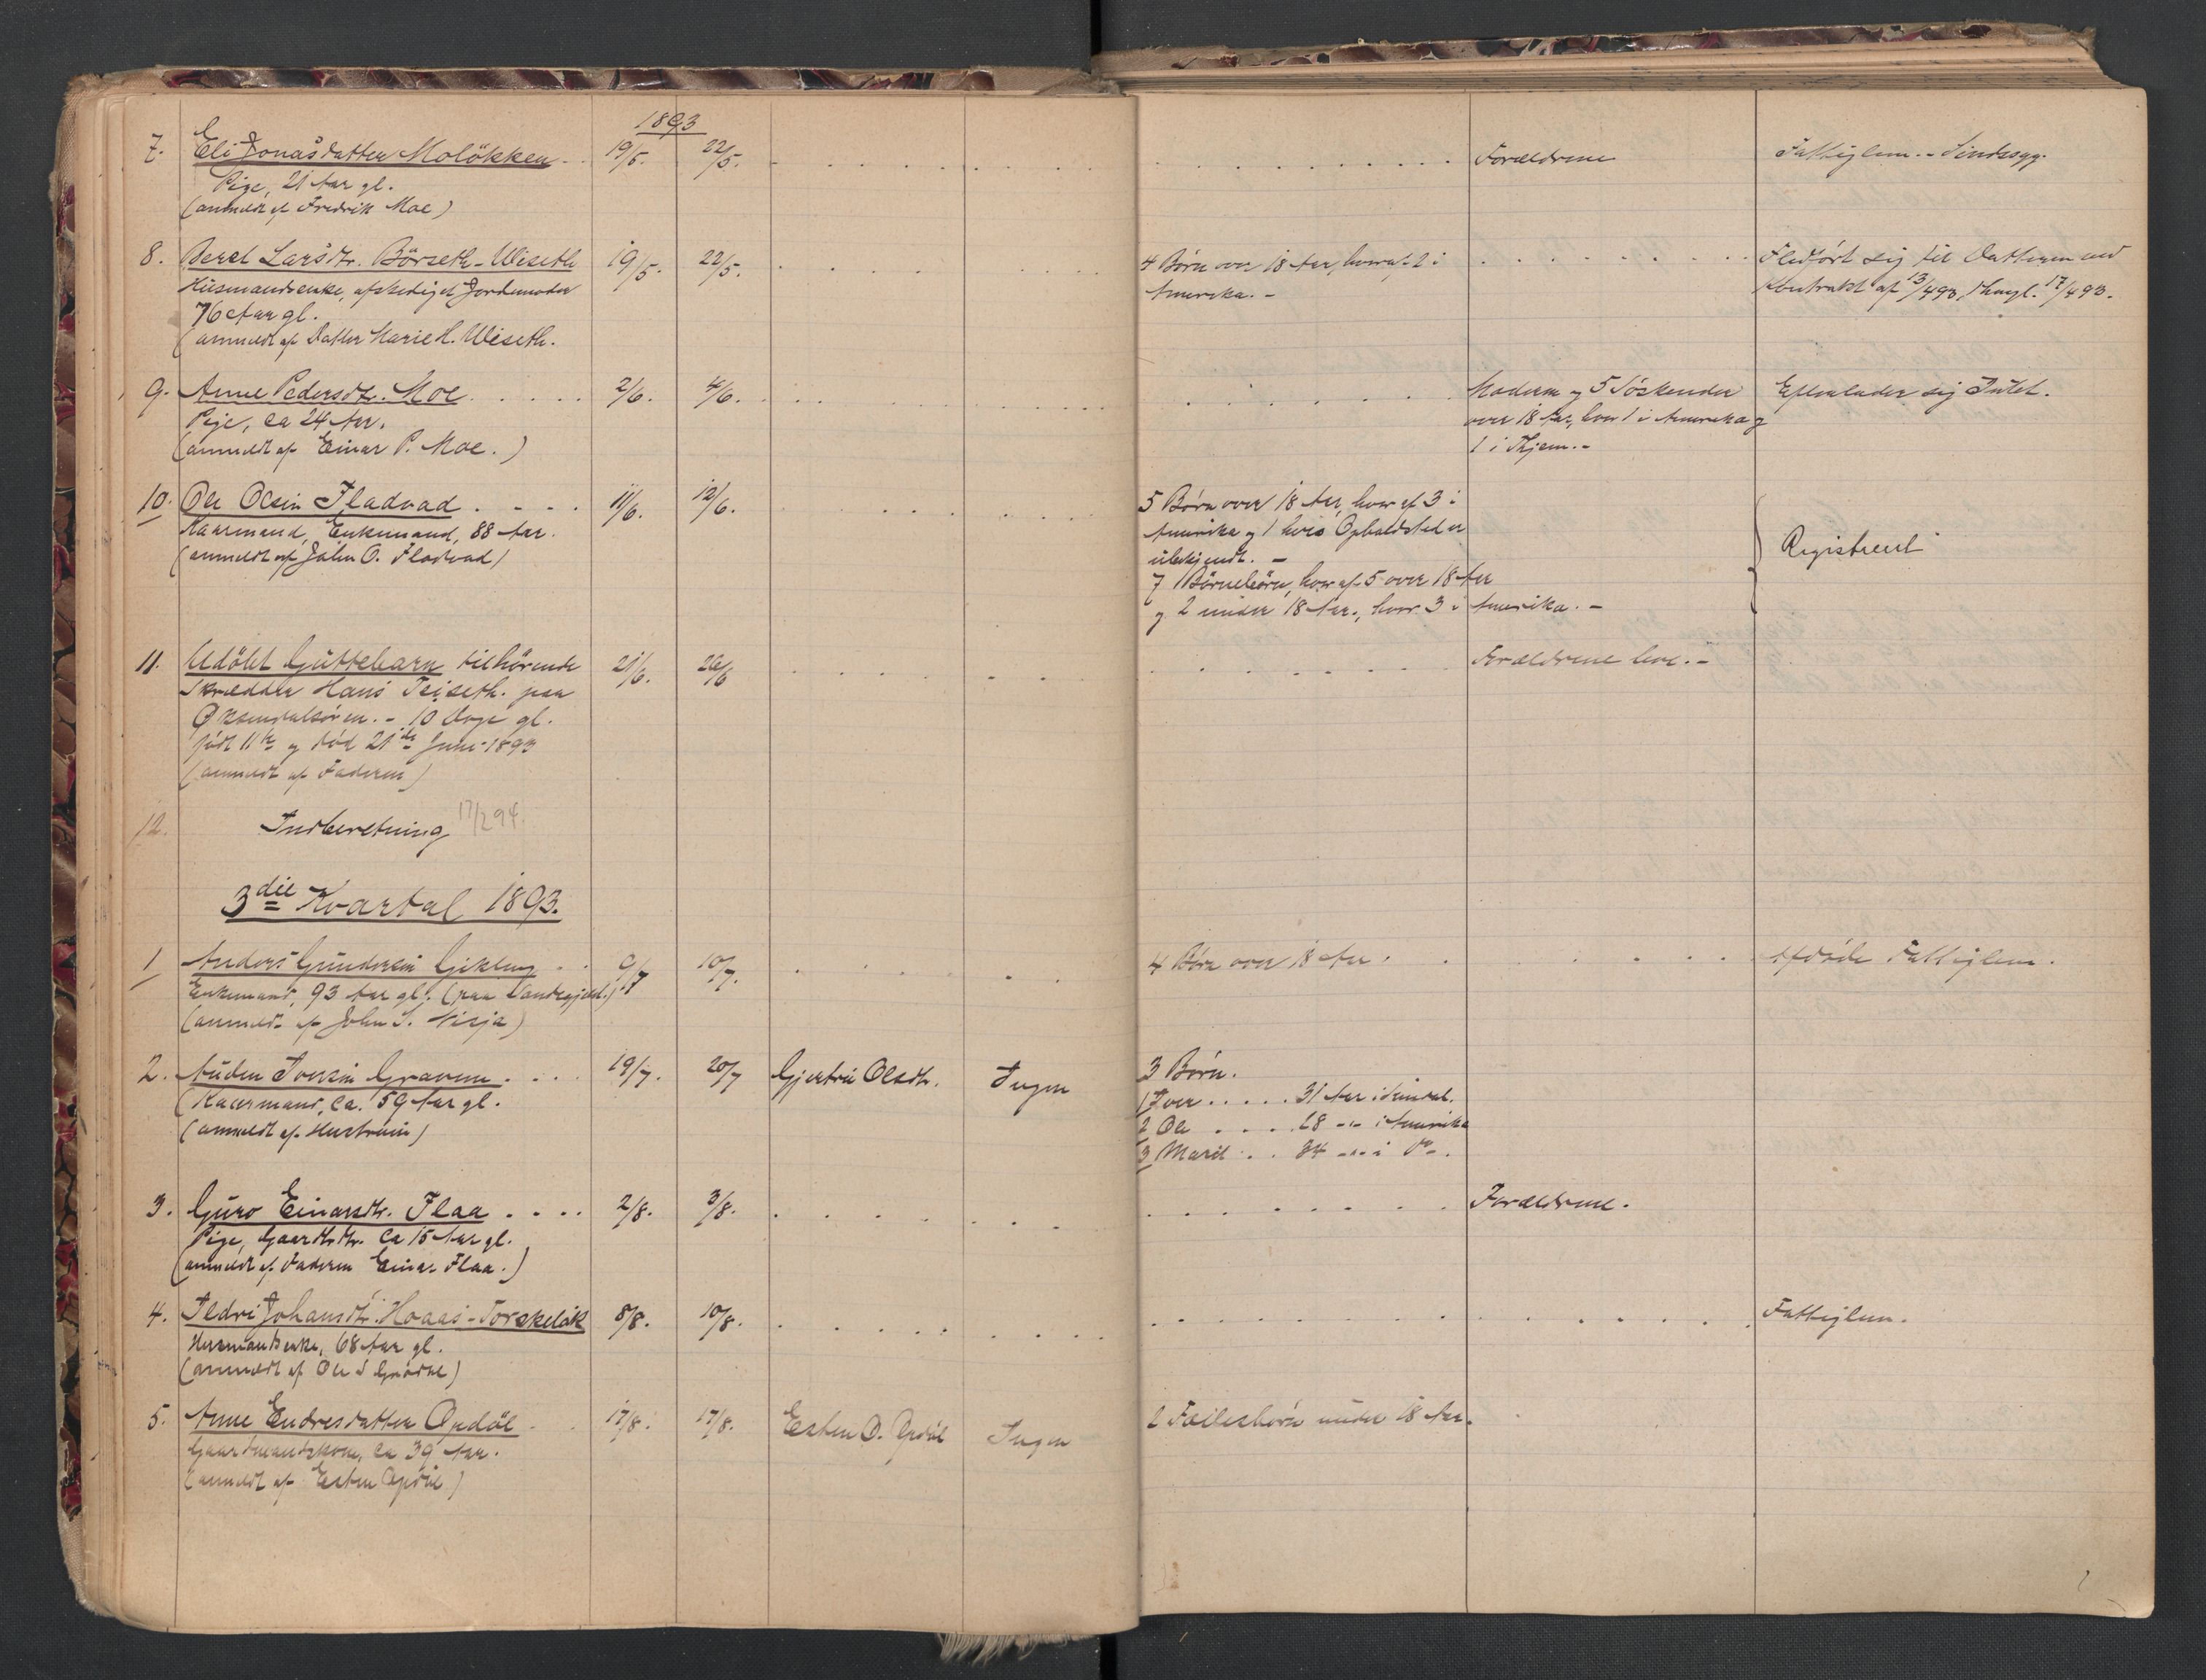 1893
7. Eli Jonasdatter Molökken 19/5. 22/5. Forældrene Fattiglem. - Sindssyg.
Pige, 21 Aar gl.
(anmeldt af Fredrik Moe)
8. Beret Larsdtr. Börseth-Wiseth 19/5. 22/5. 4 Børn over 18 Aar, hvoraf 2 i Fledført sig til Datteren ved
Husmandsenke, afskediget Jordemoder Amerika. - Kontrakt af 13/4 93, thingl. 17/4 93.
76 Aar gl.
(anmeldt af Datter Marie H. Wiseth.
9. Anne Pedersdtr. Moe 2/6. 4/6. Moderen og 5 Söskender Efterlader sig Intet.
Pige, ca 24 Aar. over 18 Aar, hvor 1 i Amerika og
(anmeldt af Einar P. Moe.) 1 i Thjem. -
10. Ole Olsen Fladvad 11/6. 12/6. 5 Børn over 18 Aar, hvoraf 3 i
Kaarmand, Enkemand, 88 Aar. Amerika og 1 hvis Opholdsted er
(anmeldt af John O. Fladvad) ubekjendt. - Registreret
7 Börnebörn, hvoraf 5 over 18 Aar
og 2 under 18 Aar, hvor 3 i Amerika. -
11. Udöbt Guttebarn tilhörende 21/6. 26/6 Forældrene leve. -
Skrædder Hans Teiseth paa
Øksendalsøren. - 10 Dage gl.
født 11te og død 21de Juni 1893
(anmeldt af Faderen)
12. Indberetning 17/2 94.
3die Kvartal 1893.
1 Anders Gundersen Gikling 9/7 10/7. 4 Børn over 18 Aar. Afdøde Fattiglem.
Enkemand, 93 Aar gl. (paa
(anmeldt af John S.
2. Auden Iversen Gravem 19/7. 20/7 Gjertru Olsdtr. Ingen 3 Børn.
(Kaarmand, ca. 59 Aar gl. 1 Iver 31 Aar i Sundal.
(anmeldt af Hustruen) 2 Ole 28 -"- i Amerika
3 Marit 24 -"- i Do.
3. Guro Einarsdtr. Flaa 2/8. 3/8. Forældrene.
Pige, Gaarddtr. ca 15 Aar gl.
(anmeldt af Faderen Einar Flaa.)
4. Ildri Johansdtr. Hoaas-Torskelök 8/8. 10/8. Fattiglem.
Husmandsenke, 68 Aar gl.
(anmeldt af Ole
5. Anne Endresdatter Opdöl 17/8. 17/8. Esten O. Opdöl Ingen 2 Fællesbørn under 18 Aar.
Gaardmandskone, ca 39 Aar.
(anmeldt af Esten Opdöl)